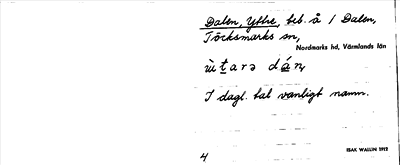 Dalen, Yttre, beb. å 1 Dalen,
Töcksmarks sn,
Nordmarks hd, Värmlands län
ù̀tarə dán,
I dagl. tal vanligt namn.
ISAK WALLIN 1912
4